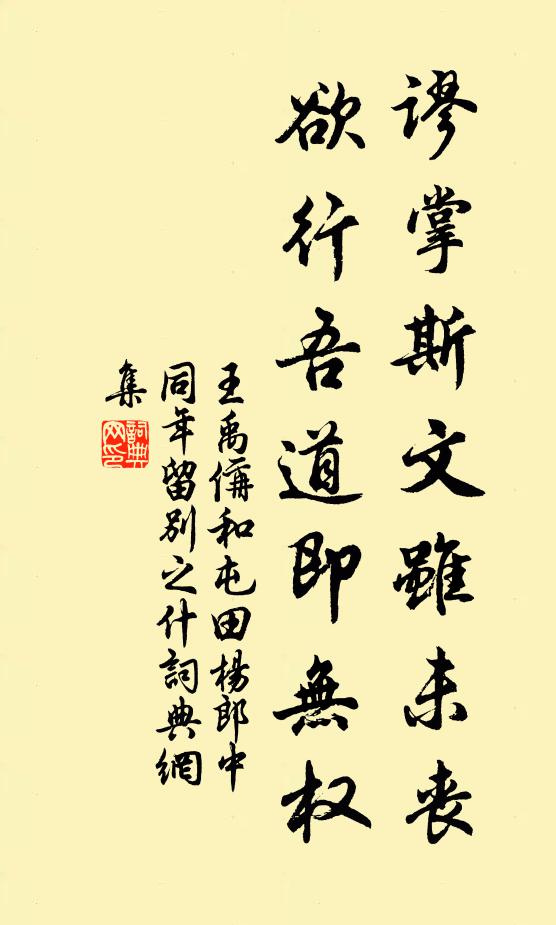 謬掌斯文雖未喪
欲行吾道即無权
王禹偁和屯田楊郎中
同年留別之什詞典網
集
詞典网印